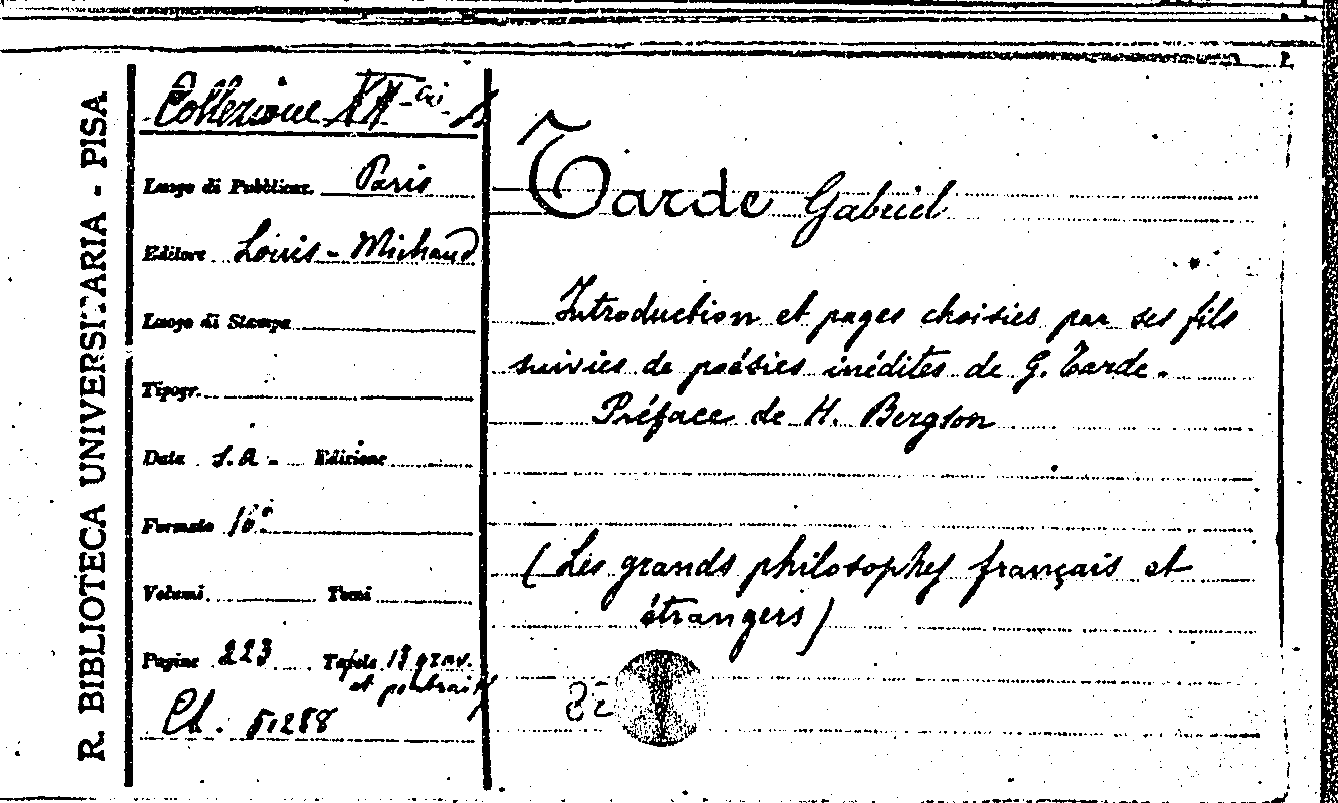 R. BIBLIOTECA UNIVERSITARIA - PISA
Collezione
Luogo di Pubblicaz. Paris
Editore Louis - Michaud
Luogo di Stampa
Tipogr.
Data s.a. Edizione
Formato 16°
Volumi Tomi
Pagine 223 Tavole 18 grav.
et portraits
51288
Tarde Gabriel
Introduction et pages choisies par ses fils
suivies de poésies inédites de G. Tarde.
Préface de H. Bergson
(Les grands philosophes français et
étrangers)